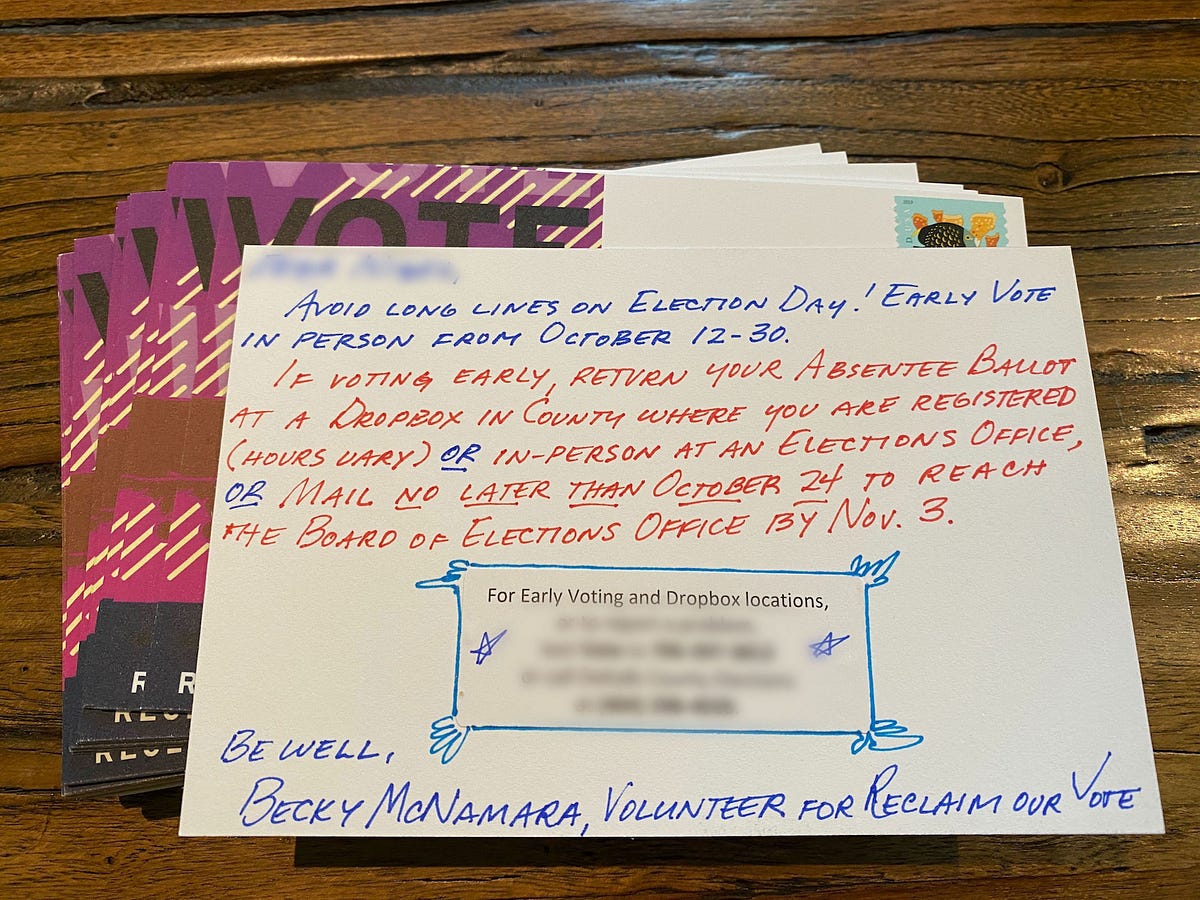 VOTE
2019
USA
AVOID LONG LINES ON ELECTION DAY! EARLY VOTE
IN PERSON FROM OCTOBER 12-30.
IF VOTING EARLY, RETURN YOUR ABSENTEE BALLOT
AT A DROPBOX IN COUNTY WHERE YOU ARE REGISTERED
(HOURS VARY) OR IN-PERSON AT AN ELECTIONS OFFICE,
OR MAIL NO LATER THAN OCTOBER 24 TO REACH
THE BOARD OF ELECTIONS OFFICE BY NOV. 3.
For Early Voting and Dropbox locations,
BE WELL,
BECKY MCNAMARA, VOLUNTEER FOR RECLAIM OUR VOTE